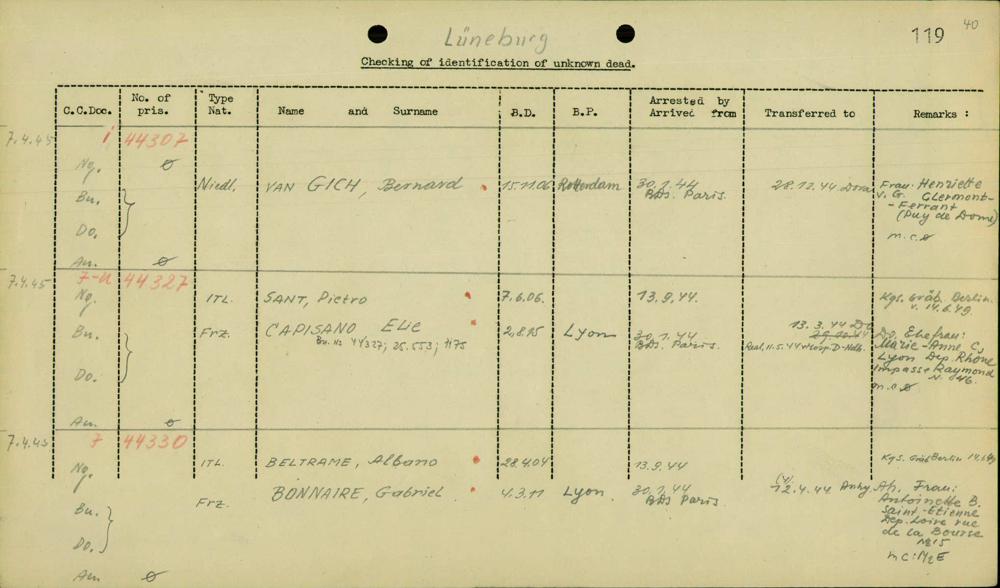 Lüneburg
119
40
Checking of identification of unknown dead.
C.C.Doc. No. of pris. Type Nat. Name and Surname B.D. B.P. Arrested by Arrived from Transferred to Remarks :
7.4.45 i 44307
Ng. ø
Niedl. VAN GICH, Bernard 15.11.06 Rotterdam 30.1.44 28.12.44 Dora Frau: Henriette
BdS. Paris. v. G. Clermont-
Bu. - Ferrant
(Puy de Dome)
Do. m.c.ø
Au. ø
7.4.45 44327
Ng. ITL. SANT, Pietro 7.6.06. 13.9.44. Kgs. Gräb. Berlin.
v. 14.6.49.
13.3.44 Do
Bu. Frz. CAPISANO, Elie 2.8.95 Lyon 30.1.44 Do. Ehefrau:
Bu. No 44327; 25.553; BdS. Paris. Marie-Anne C,
Lyon Dep. Rhône
Do. Impasse Raymond
m.c.ø
Au. ø
7.4.45 7 44330
Ng. ITL. BELTRAME, Albano 28.4.04 13.9.44 Kgs. Gräb Berlin 14.6.49
Frz. BONNAIRE, Gabriel 4.3.11 Lyon. 30.1.44 12.4.44 Ah. Frau:
BdS Paris Antoinette B.
Bu. Saint-Etienne
Dep. Loire rue
de la Bourse
Do. No 15
Au ø